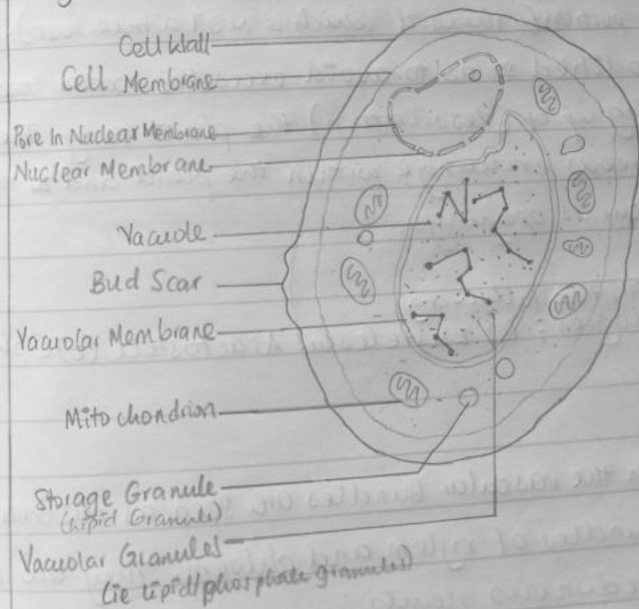 Cell Wall
Cell Membrane
Pore In Nuclear Membrane
Nuclear Membrane
Vacuole
Bud Scar
Vacuolar Membrane
Mitochondrion
Storage Granule
(Lipid Granule)
Vacuolar Granules
(ie lipid/phosphate granules)